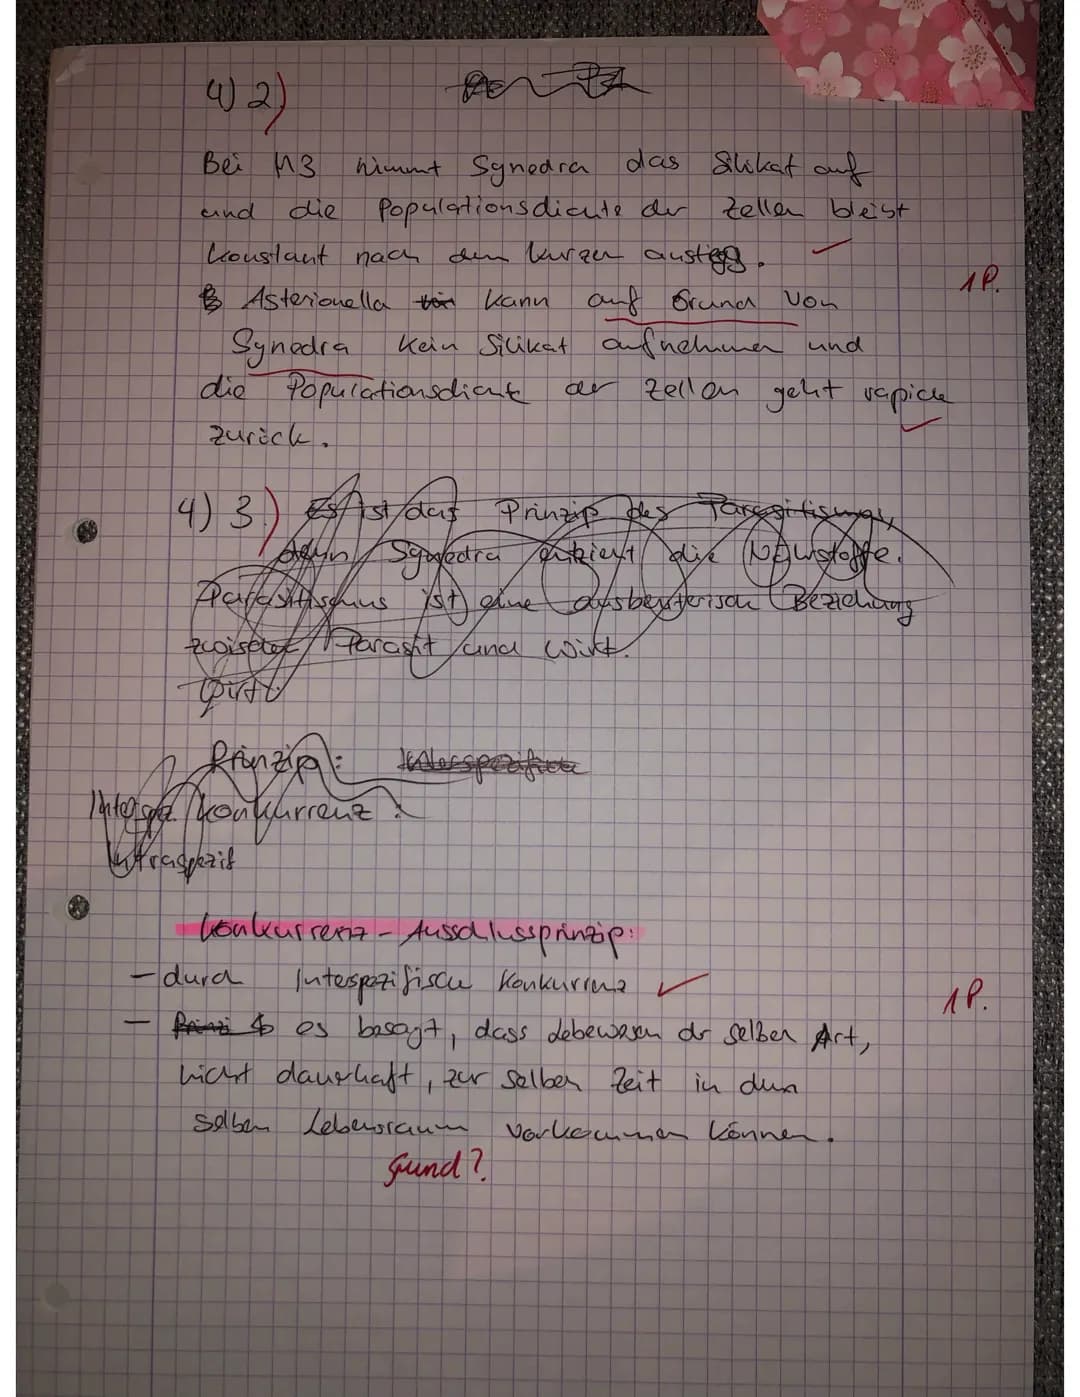 4) 2)
Bei M3 nimmt Synedra das Silikat auf
und die Populationsdichte der Zellen bleibt
konstant nach dem kurzen
1P.
Asterionella kann auf Grund von
Synedra kein Silikat aufnehmen und
die Populationsdicht der Zellen geht rapide
zurück.
4) 3.) Es ist das Prinzip des Parasitismus,
denn Synedra entzieht die
Parasitismus ist eine ausbeuterische Beziehung
zwischen Parasit und Wirt.
Wirt
Prinzip: Interspezifische
Konkurrenz:
Intraspezif
Konkurrenz-Ausschlussprinzip:
- durch Interspezifische Konkurrenz
1P.
- es besagt, dass Lebewesen der selben Art,
nicht dauerhaft, zur selben Zeit in dem
selben Lebensraum vorkommen können.
Grund?